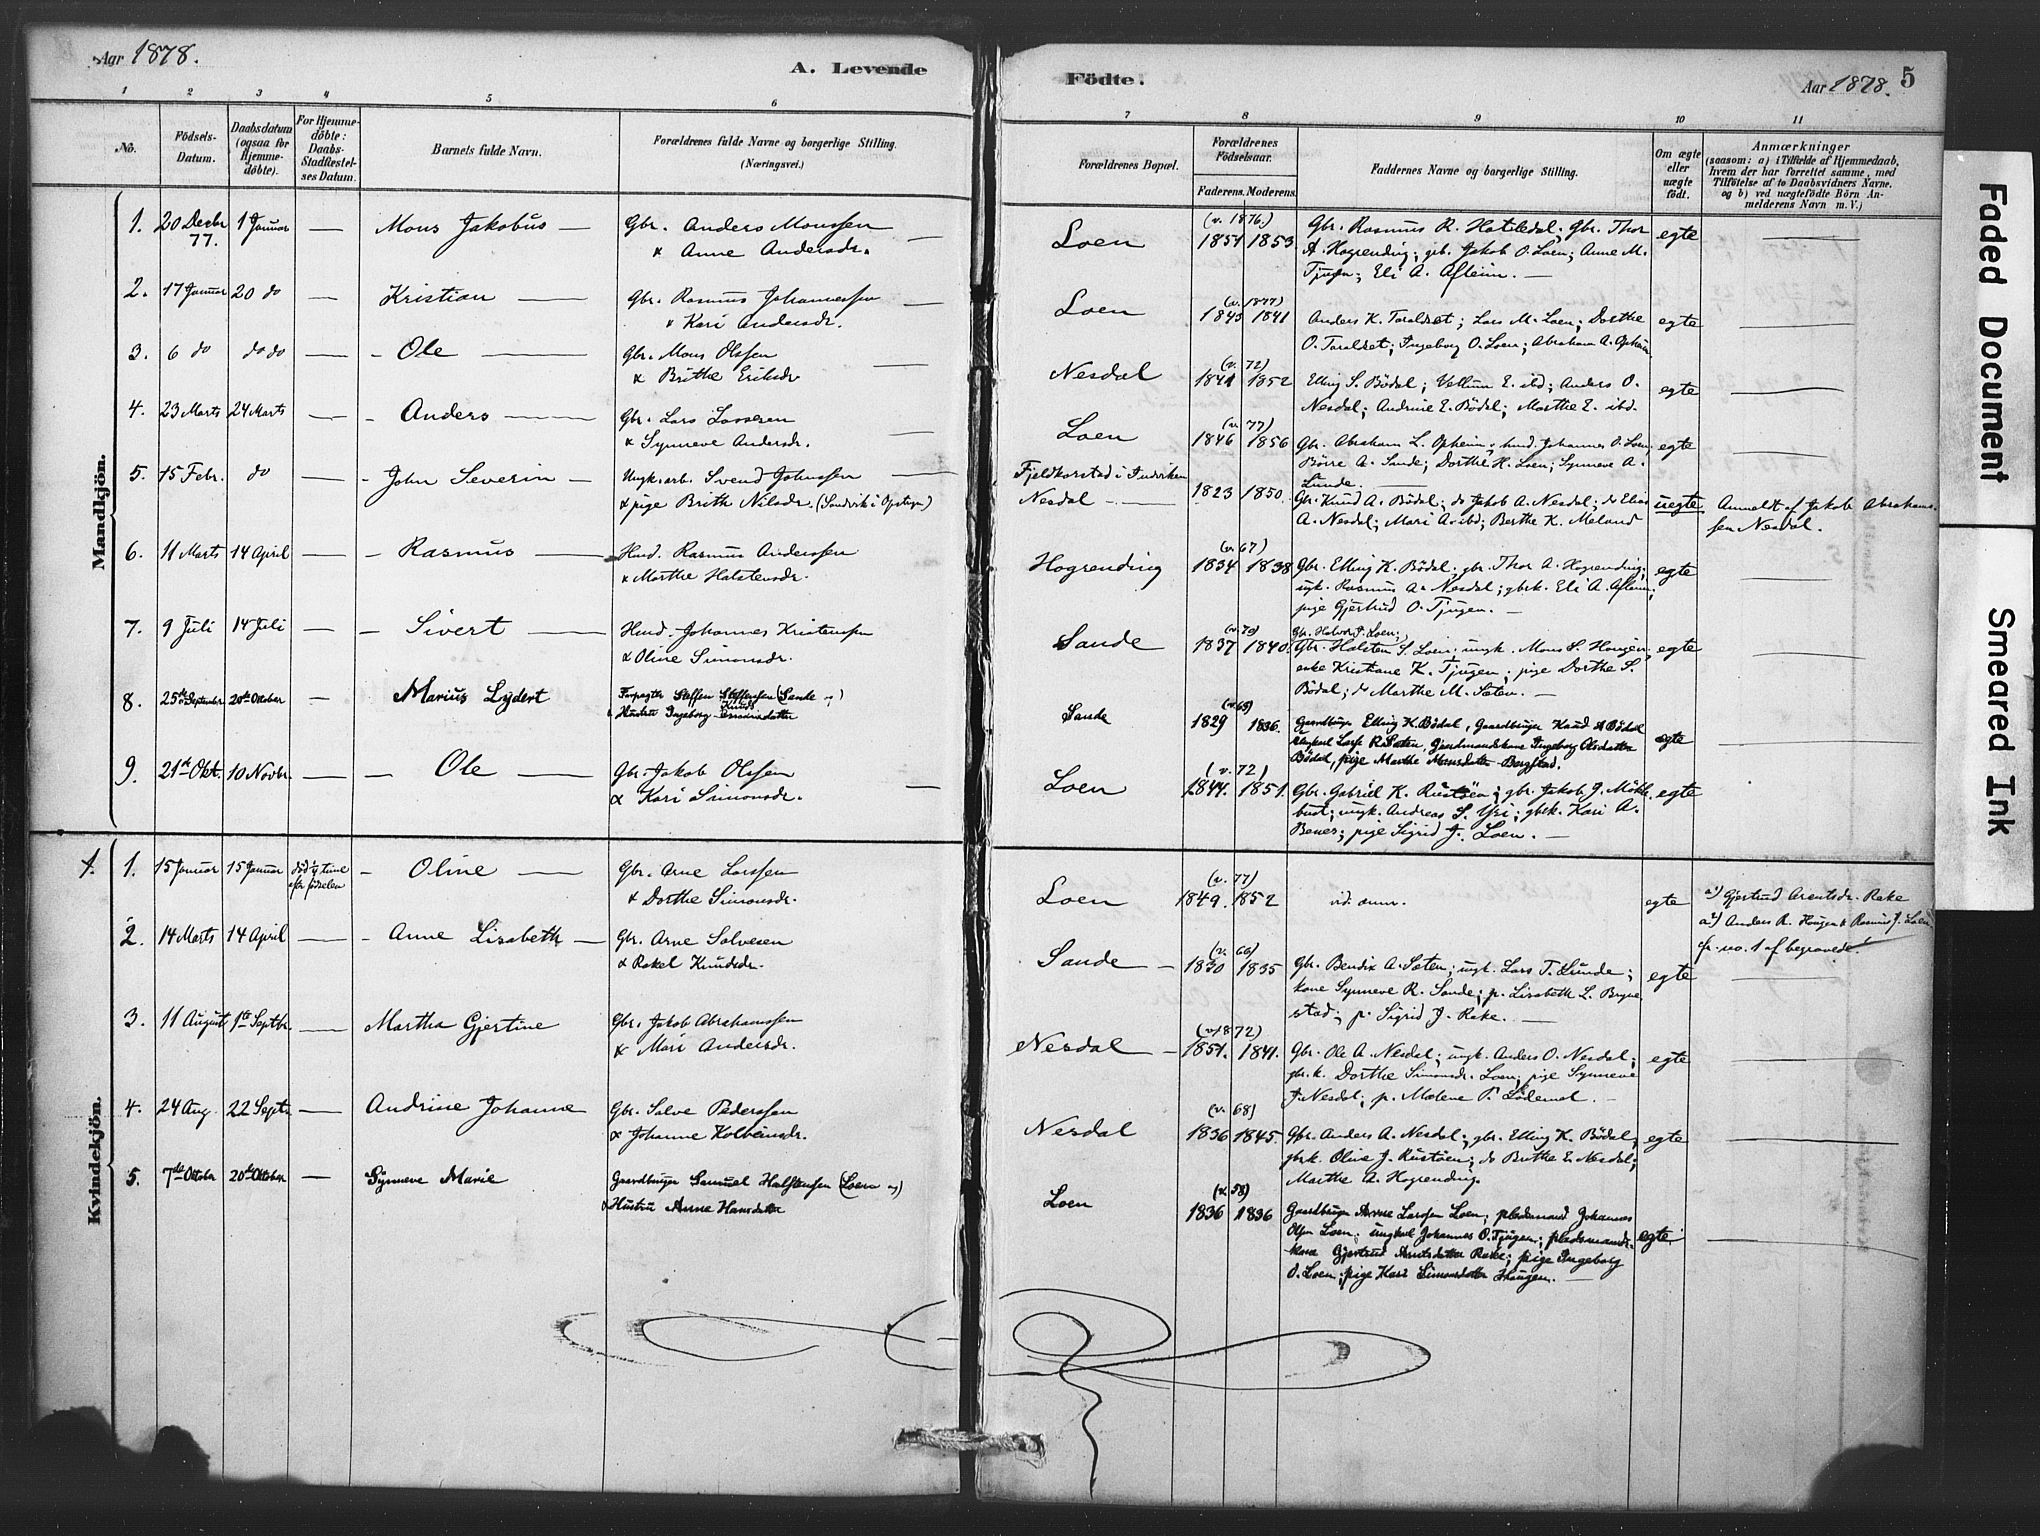 Aar 1878.
A. Levende
Födte.
Aar 1878.
5
1 2 3 4 5 6 7 8 9 10 11
No.
Födsels-Datum.
Daabsdatum (ogsaa for Hjemmedöbte).
For Hjemmedöbte: Daabs-Stadfæstelses Datum.
Barnets fulde Navn.
Forældrenes fulde Navne og borgerlige Stilling. (Næringsvei.)
Forældrenes Bopæl.
Forældrenes Födselsaar.
Faderens. Moderens.
Faddernes Navne og borgerlige Stilling.
Om ægte eller uægte födt.
Anmærkninger
(saasom: a) i Tilfælde af Hjemmedaab, hvem der har forrettet samme, med Tilföielse af to Daabsvidners Navne. og b) ved uægtefödte Börn Anmelderens Navn m. V.)
Mandkjön.
1. 20 Decbr 77. 1 Januar — Mons Jakobus — Gbr. Anders Monssen
& Anne Andersdr.
Loen (v. 1876.) 1851 1853 Gbr. Rasmus R. Hatledal; Gbr. Thor
A. Hogrending; gbr. Jakob O. Loen; Anne M.
Tjugen; Eli A. Afleim. — egte
2. 17 Januar 20 do — Kristian — Gbr. Rasmus Johannessen
& Kari Andersdr.
Loen (v. 1877) 1845 1841 Anders K. Taraldset; Lars M. Loen; Dorthe
O. Taraldset; Ingeborg O. Loen; Abraham A. Opheim egte
3. 6 do do do — Ole — Gbr. Mons Olssen
& Brithe Eriksdr
Nesdal (v. 72) 1841 1852 Elling S. Bödal; Vellum E. ibd; Anders O.
Nesdal; Andrine E. Bödal; Marthe E. ibd. egte
4. 23 Marts 24 Marts — Anders — Gbr. Lars Lassesen
& Synneve Andersdr.
Loen (v. 77) 1846 1856 Gbr. Abraham L. Opheim; husd. Johannes O. Loen;
Börre A. Sande; Dorthe H. Loen; Synneve A.
Lunde. — egte
5. 15 Febr. do — John Severin — Ungk. arb. Svend Johnssen
& pige Brith Nilsdr. (Sandvik i Opstryn)
Fjeldkarstad i Indviken
Nesdal — 1823 1850. Gbr. Knud A. Bödal; do Jakob A. Nesdal; do Elias
A. Nesdal; Mari A. ibd; Berthe K. Meland uegte Anmeldt af Jakob Abrahams-
sen Nesdal.
6. 11 Marts 14 April — Rasmus — Husd. Rasmus Anderssen
& Marthe Halstensdr.
Hogrending (v. 67) 1834 1838 Gbr. Elling K. Bödal; gbr. Thor A. Hogrending;
ungk. Rasmus A. Nesdal; gbrk. Eli A. Afleim;
pige Gjertrud O. Tjugen. — egte
7. 9 Juli 14 Juli — Sivert — Husd. Johannes Kristenssen
& Oline Simonsdr.
Sande (v. 70) 1837 1840. Gbr. Halvor J. Loen;
Gbr. Halsten S. Loen; ungk. Mons S. Haugen;
enke Kristiane K. Tjugen; pige Dorthe S.
Bödal; do Marthe M. Sæten. — egte
8. 25de September 20de Oktober — Marius Lydert Forpagter Steffen Steffensen (Sande)
& Hustru Ingeborg Knudsdatter
Sande (v. 65) 1829 1836. Gaardbruger Elling K. Bödal, Gaardbruger Knud A Bödal
Ungkarl Lasse R. Sæten, Gaardmandskone Ingeborg Olsdatter
Bödal, pige Marthe Monsdatter Bergstad. egte
9. 21de Okt. 10 Novbr. — Ole — Gbr. Jakob Olssen
& Kari Simonsdr.
Loen (v. 72) 1844. 1851. Gbr. Gabriel K. Rustöen; gbr. Jakob J. Mökle-
bust; ungk. Andreas S. Yri; gbrk. Kari A.
Benes; pige Sigrid J. Loen. — egte
Kvindekjön.
1. 1. 15 Januar 15 Januar död ½ time efter födselen — Oline — Gbr. Arne Larssen
& Dorthe Simonsdr.
Loen (v. 77) 1849. 1852 vid. anm. egte a1) Gjertrud Arentsdr. Rake
a2) Anders R. Haugen & Rasmus J. Loen
cfr. no. 1 af begravede!
2. 14 Marts 14 April — Anne Lisabeth — Gbr. Arne Salvesen
& Rakel Knudsdr.
Sande — (v. 60) 1830 1835 Gbr. Bendix A. Sæten; ungk. Lars T. Lunde;
kone Synneve R. Sande; p. Lisabeth L. Bryne-
stad; p. Sigrid J. Rake. — egte
3. 11 August 1ste Septbr. — Martha Gjertine Gbr. Jakob Abrahamssen
& Mari Andersdr.
Nesdal — (v. 1872) 1851. 1841. Gbr. Ole A. Nesdal; ungk. Anders O. Nesdal;
gbr.k. Dorthe Simonsdr. Loen; pige Synneve
J. Nesdal; p. Malene P. Lödemel. — egte
4. 24 Aug. 22 Septr. — Andrine Johanne Gbr. Salve Pederssen
& Johanne Kolbeinsdr.
Nesdal (v. 68) 1836 1845. Gbr. Anders A. Nesdal; gbr. Elling K. Bödal;
gbrk. Oline J. Rustöen; do Brithe E. Nesdal;
Marthe A. Hogrending. egte
5. 7de Oktober 20de Oktober — Synneve Marie Gaardbruger Samuel Halstensen (Loen)
& Hustru Anne Hansdatter
Loen (v. 58) 1836 1836 Gaardbruger Arne Larssen Loen, pladsmand Johannes
Olsen Loen; ungkarl Johannes O. Tjugen; pladsmands-
kone Gjertrud Arntsdatter Rake; pige Ingeborg
O. Loen; pige Kari Simonsdatter Haugen. — egte
Faded Document
Smeared Ink